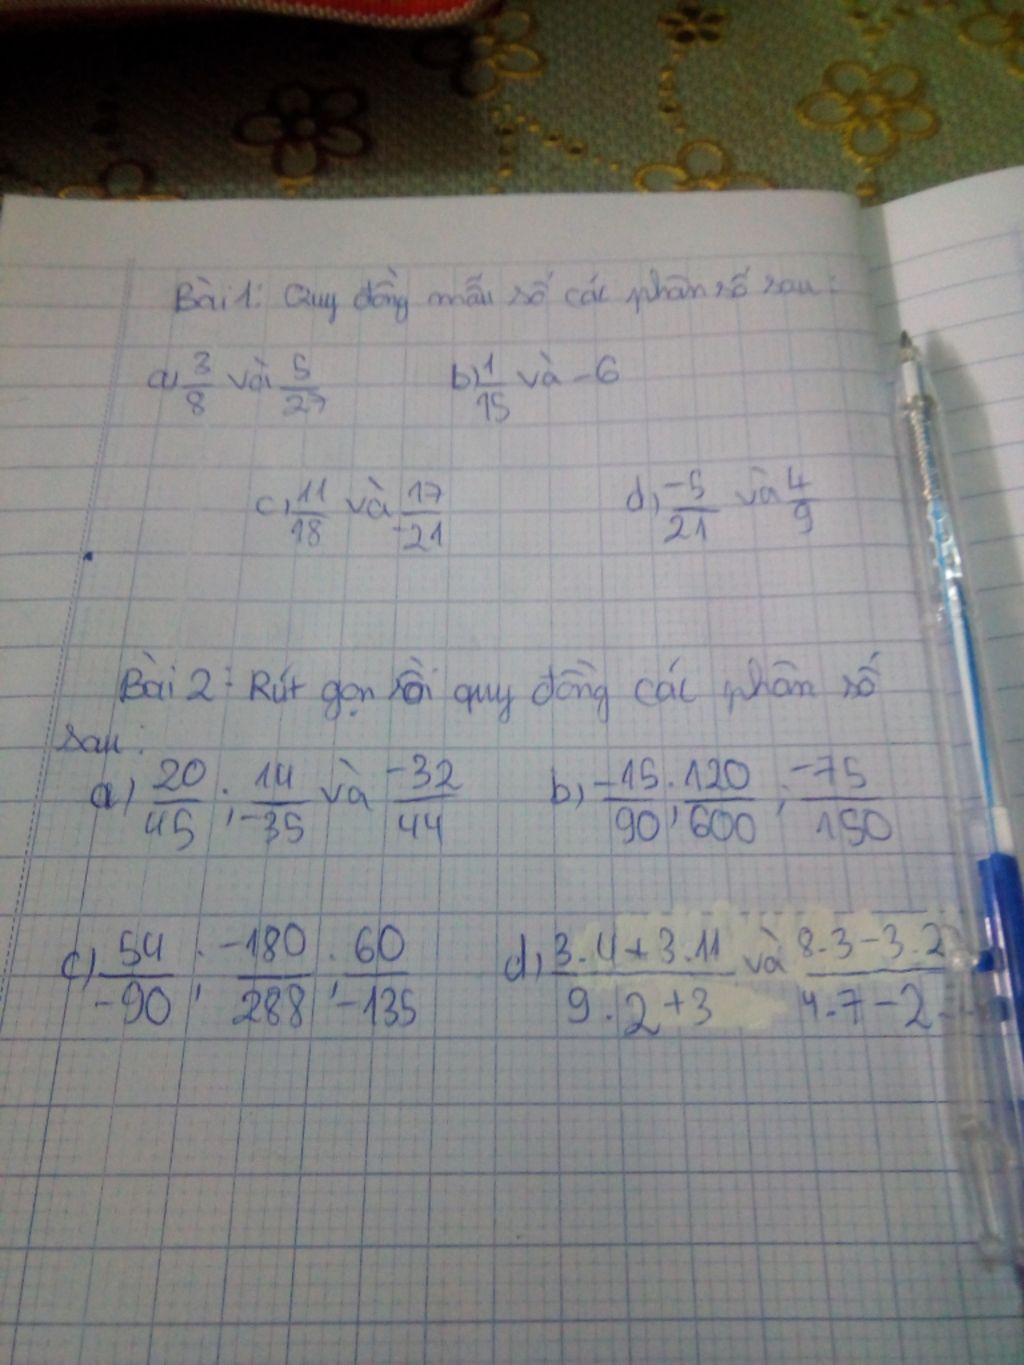 Bài 1: Quy đồng mẫu số các phân số sau:
a) 3/8 và 5/27 b) 1/15 và -6
c) 11/18 và 17/-21 d) -5/21 và 4/9
Bài 2: Rút gọn rồi quy đồng các phân số
sau:
a) 20/45 ; 14/-35 và -32/44 b) -15/90 ; 120/600 ; -75/150
c) 54/-90 ; -180/288 ; 60/-135 d) 3.4+3.11/9.2+3 và 8.3-3.2/4.7-2